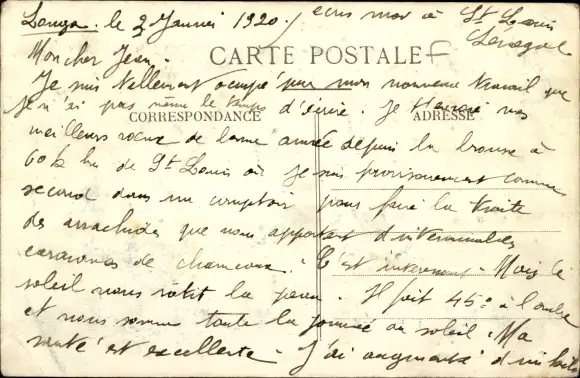 Louga. le 2 Janvier 1920. / écris moi à St Louis
Sénégal
Mon cher Jean.
CARTE POSTALE
Je suis tellement occupé par mon nouveau travail que
je n'ai pas même le temps d'écrire. Je t'envoie mes
CORRESPONDANCE
ADRESSE
meilleurs vœux de bonne année depuis la brousse à
60 k de St Louis où je suis provisoirement comme
second dans un comptoir pour faire la traite
des arachides que nous apportent d'interminables
caravanes de chameaux. C'est interessant. Mais le
soleil nous rôtit la peau. Il fait 45° à l'ombre
et nous sommes toute la journée au soleil. Ma
santé est excellente. J'ai augmenté d'un kilo